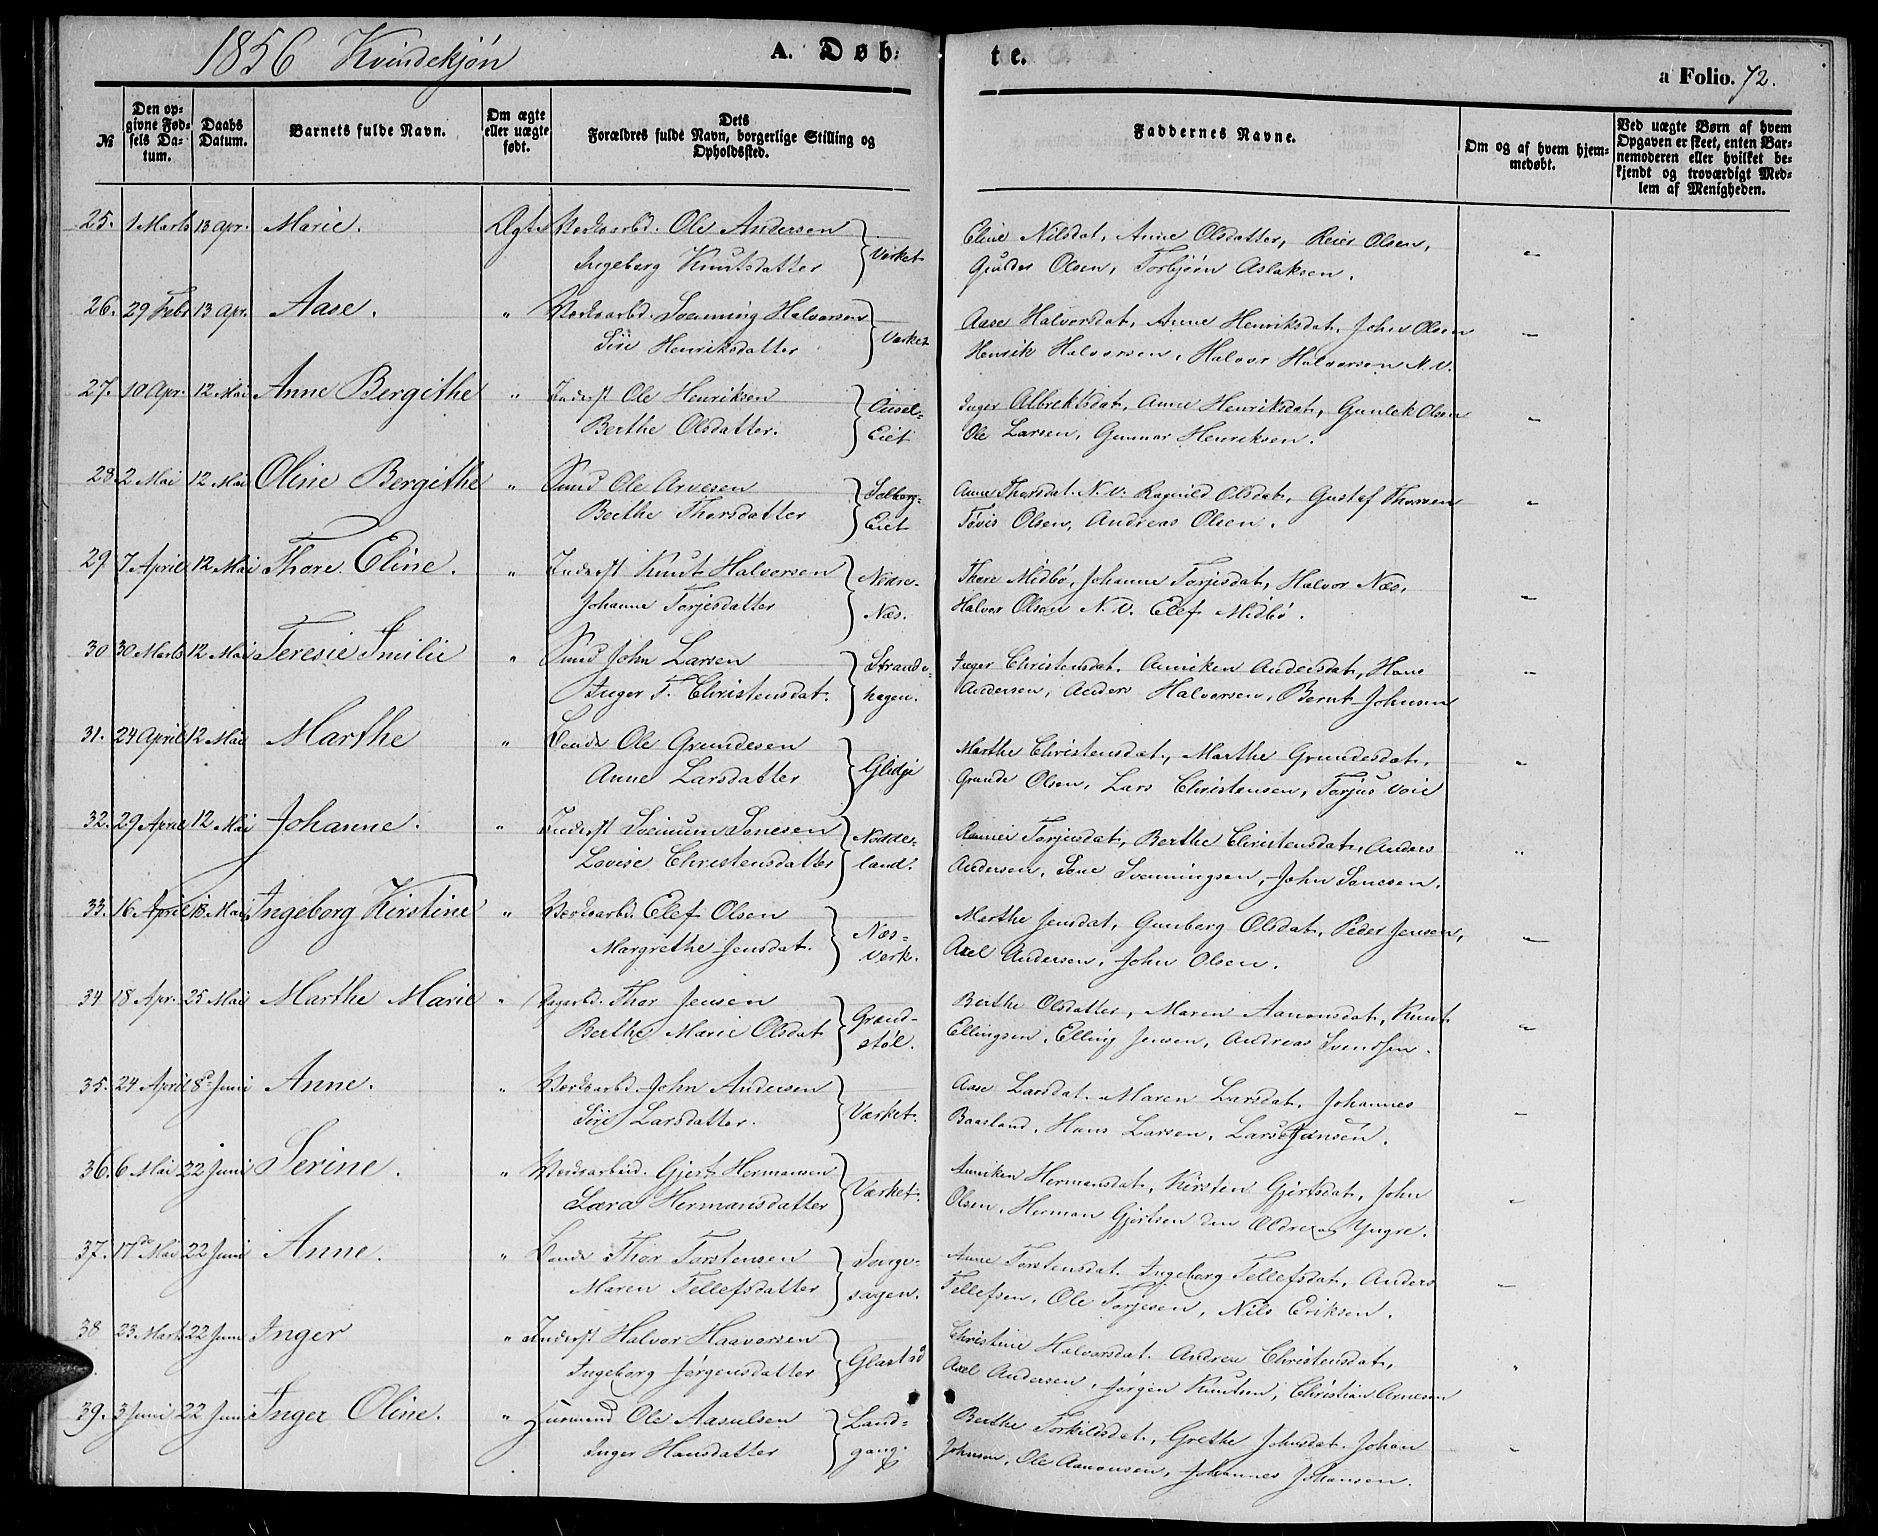 1856 Kvindekjøn A. Døb: te. a Folio. 72.
№ Den opgivne Fødsels Datum. Daabs Datum. Barnets fulde Navn. Om ægte eller uægte født. Dets Forældres fulde Navn, borgerlige Stilling og Opholdssted. Faddernes Navne. Om og af hvem hjemmedøbt. Ved uægte Børn af hvem Opgaven er skeet, enten Barnemoderen eller hvilket bekjendt og troværdigt Medlem af Menigheden.
25. 1 Marts 13 Apr. Marie. Ægte Værksarbd. Ole Andersen Værket Eline Nilsdat, Anne Olsdatter, Reier Olsen, „
Ingeborg Knutsdatter Gulder Olsen, Torbjørn Aslaksen.
26. 29 Febr 13 Apr. Aase. „ Værksarbd. Svenning Halvorsen Værket Aase Halvorsdat, Anne Henriksdat, John Olsen „
Siri Henriksdatter Henrik Halvorsen, Halvor Halvorsen N.V.
27. 10 Apr. 12 Mai Anne Bergithe „ Inderst Ole Henriksen Inger Albrektsdat, Anne Henriksdat, Gunlek Olsen „
Berthe Olsdatter. Eiet Ole Larsen, Gunnar Henriksen.
28. 2 Mai 12 Mai Oline Bergithe „ Smed Ole Arvesen Solberg- Anne Thorsdat. N.V. Ragnild Olsdat, Gustaf Thorsen „
Berthe Thorsdatter Eiet Tøvis Olsen, Andreas Olsen.
29. 7 April 12 Mai Thore Eline. „ Inderst Knut Halvorsen Thore Midbø, Johanne Torjesdat, Halvor Næs, „
Johanne Torjesdatter Næs. Halvor Olsen N.V. Elef Midbø.
30 30 Marts 12 Mai Teresie Emilie „ Smed John Larsen Strande- Inger Christensdat. Anniken Andersdat, Hans „
Inger T. Christensdat. hagen. Andersen, Anders Halvorsen, Bernt Johnsen
31. 24 April 12 Mai Marthe „ Bonde Ole Grundesen Glidje Marthe Christensdat, Marthe Grundesdat, „
Anne Larsdatter Grunde Olsen, Lars Christensen, Torjus Voie
32. 29 April 12 Mai Johanne. „ Inderst Svenum Senesen Nodde- Torjusdat, Berthe Christensdat, Anders „
Lovise Christensdatter land. Andersen, Sone Svenningsen, John Sonesen.
33. 16 April 18 Mai Ingeborg Kirstine „ Værksarbd. Elef Olsen Næs- Marthe Jensdat, Gunborg Olsdat, Peder Jensen, „
Margrethe Jensdat. Værk. Axel Andersen, John Olsen.
34 18 Apr. 25 Mai Marthe Marie „ Thor Jensen Grønd- Berthe Olsdatter, Maren Aanonsdat, Knut „
Berthe Marie Olsdat støl. Ellingsen, Elling Jensen, Andreas Svendsen.
35. 24 April 8de Juni Anne. „ Værksarbd. John Andersen Værket. Aase Larsdat. Maren Larsdat, Johannes „
Siri Larsdatter. Baasland, Hans Larsen, Lars Jensen.
36. 6 Mai 22 Juni Serine. „ Værksarbeid. Gjert Hermansen Værket. Anniken Hermansdat, Kirsten Gjertsdat, John „
Sara Hermansdatter Olsen, Herman Gjertsen den Ældre og Yngre.
37. 17de Mai 22 Juni Anne. „ Bonde Thor Torstensen Songe- Anne Torstensdat. Ingeborg Tellefsdat, Anders „
Maren Tellefsdatter saugen. Tellefsen, Ole Torjesen, Nils Eriksen.
38 23. Marts 22 Juni Inger „ Inderst Halvor Haavorsen Glastad Christine Halvorsdat. Andrea Christensdat, „
Ingeborg Jørgensdatter Axel Andersen, Jørgen Knutsen, Christian Arnesen
39. 3 Juni 22 Juni Inger Oline. „ Husmand Ole Aasulsen Land- Berthe Torkildsdat, Grethe Johnsdat. Johan „
Inger Hansdatter gang. Johnsen, Ole Aanonsen, Johannes Johansen.